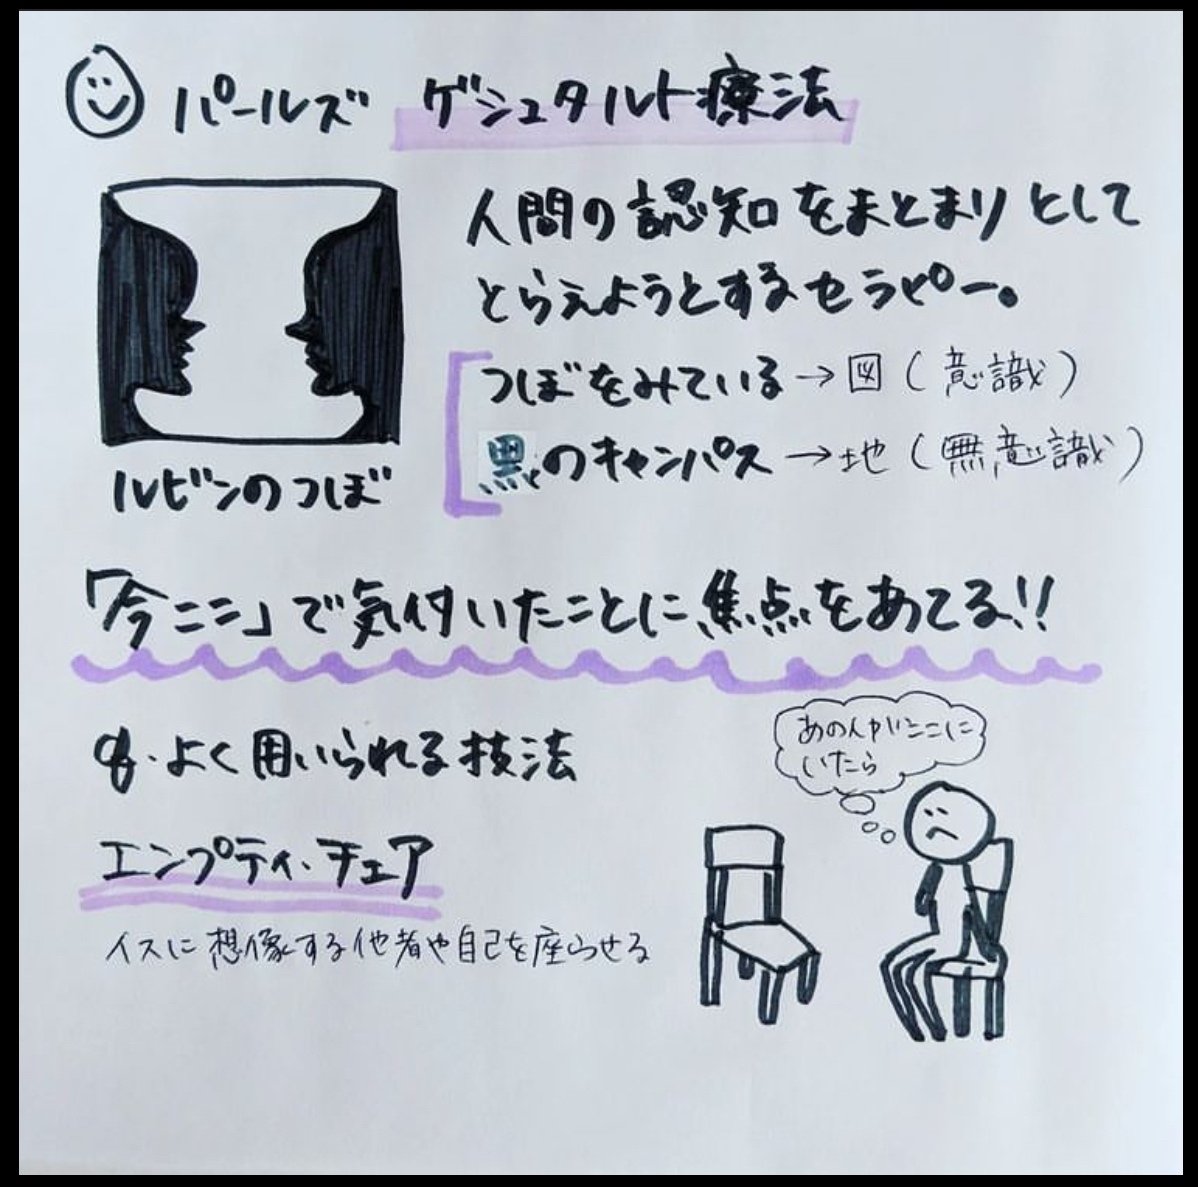 パールズ ゲシュタルト療法
人間の認知をまとまりとして
とらえようとするセラピー。
つぼをみている→図(意識)
黒のキャンパス→地(無意識)
ルビンのつぼ
「今ここ」で気付いたことに焦点をあてる!!
よく用いられる技法
あの人がここに
いたら
エンプティ・チェア
イスに想像する他者や自己を座らせる